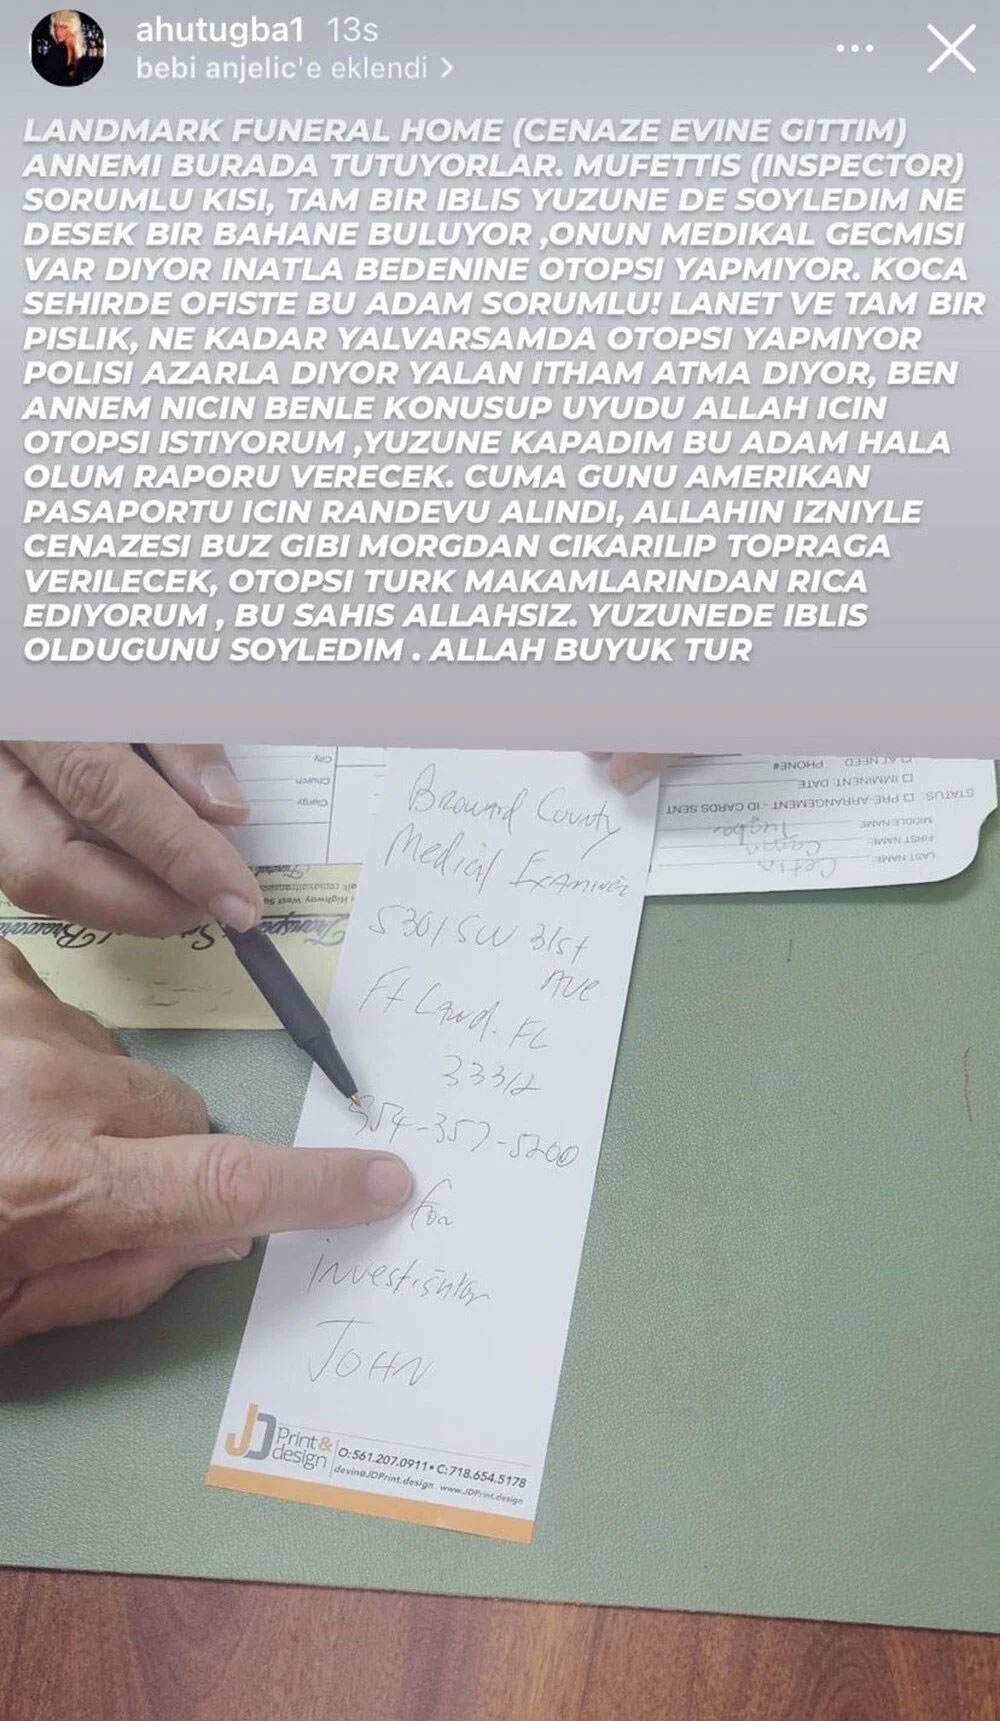 ahutugba1 13s
bebi anjelic'e eklendi >
LANDMARK FUNERAL HOME (CENAZE EVINE GITTIM)
ANNEMI BURADA TUTUYORLAR. MUFETTIS (INSPECTOR)
SORUMLU KISI, TAM BIR IBLIS YUZUNE DE SOYLEDIM NE
DESEK BIR BAHANE BULUYOR ,ONUN MEDIKAL GECMISI
VAR DIYOR INATLA BEDENINE OTOPSI YAPMIYOR. KOCA
SEHIRDE OFISTE BU ADAM SORUMLU! LANET VE TAM BIR
PISLIK, NE KADAR YALVARSAMDA OTOPSI YAPMIYOR
POLISI AZARLA DIYOR YALAN ITHAM ATMA DIYOR, BEN
ANNEM NICIN BENLE KONUSUP UYUDU ALLAH ICIN
OTOPSI ISTIYORUM ,YUZUNE KAPADIM BU ADAM HALA
OLUM RAPORU VERECEK. CUMA GUNU AMERIKAN
PASAPORTU ICIN RANDEVU ALINDI, ALLAHIN IZNIYLE
CENAZESI BUZ GIBI MORGDAN CIKARILIP TOPRAGA
VERILECEK, OTOPSI TURK MAKAMLARINDAN RICA
EDIYORUM , BU SAHIS ALLAHSIZ. YUZUNEDE IBLIS
OLDUGUNU SOYLEDIM . ALLAH BUYUK TUR
City
Church
Clergy
AT NEED PHONE#
IMMINENT DATE
STATUS: PRE-ARRANGEMENT - ID CARDS SENT
MIDDLE NAME Tugba
FIRST NAME
LAST NAME
Highway West
Broward County
Medical Examiner
5301 SW 31st
Ave
Ft Laud. FL
33312
954-357-5200
for
investigator
JOHN
JD Print& design
O:561.207.0911 • C:718.654.5178
devin@JDPrint.design www.JDPrint.design